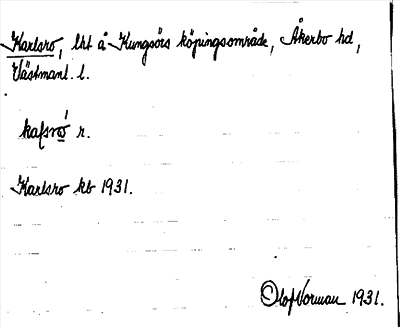 Karlsro, lht å Kungsörs köpingsområde, Åkerbo hd,
Västmanl. l.
kaḷsrὼ r.
Karlsro kb 1931.
Olof Norman 1931.